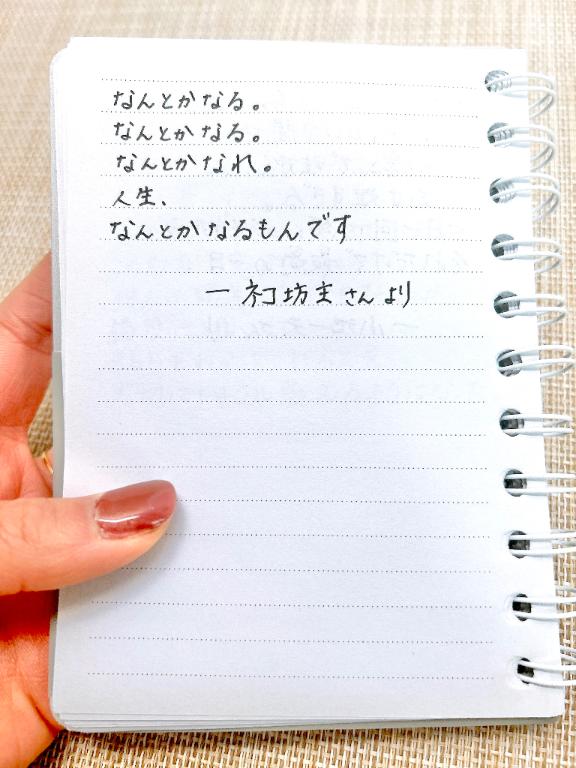 なんとかなる。
なんとかなる。
なんとかなれ。
人生、
なんとかなるもんです
ー ネコ坊主さんより